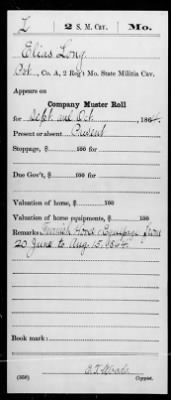 L 2 S. M. Cav. Mo.
Elias Long
Pvt., Co. A, 2 Reg't Mo. State Militia Cav.
Appears on
Company Muster Roll
for Sept. and Oct., 1864.
Present or absent Present
Stoppage, $ 100 for
Due Gov't, $ 100 for
Valuation of horse, $ 100
Valuation of horse equipments, $ 100
Remarks: Furnish Horse Equipage from
20 June to Aug 15, 1864.
Book mark:
(358) Copyist.